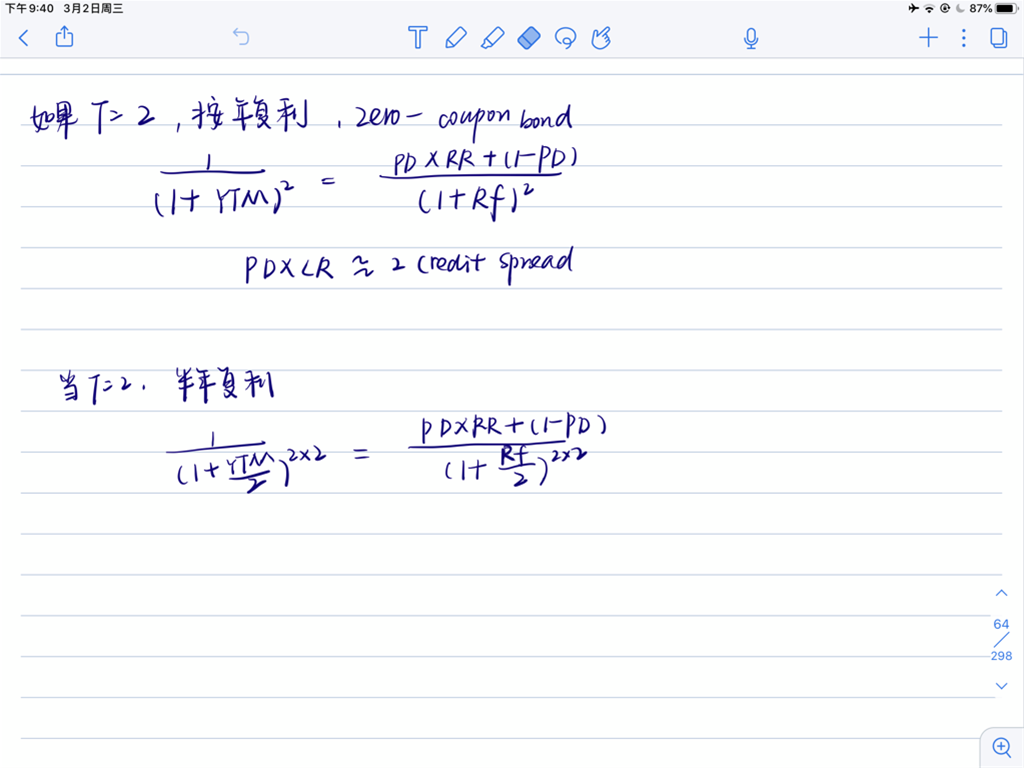 下午9:40 3月2日周三
87%
如果 T=2，按年复利，zero-coupon bond
1/(1+YTM)^2 = PD×RR+(1-PD)/(1+Rf)^2
PD×LR ≈ 2 credit spread
当T=2. 半年复利
1/(1+YTM/2)^2×2 = PD×RR+(1-PD)/(1+Rf/2)^2×2
64
298